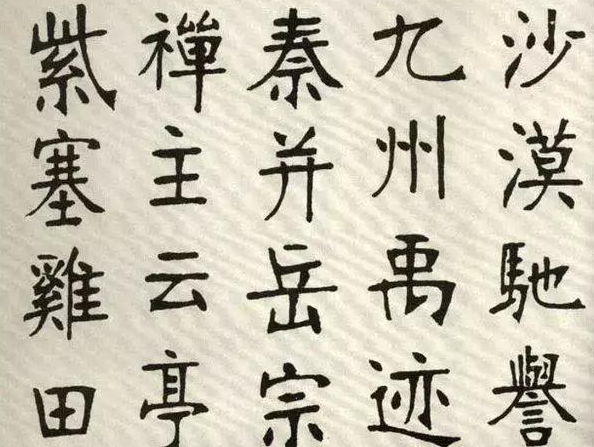 沙漠馳譽
九州禹迹
秦并岳宗
禪主云亭
紫塞雞田